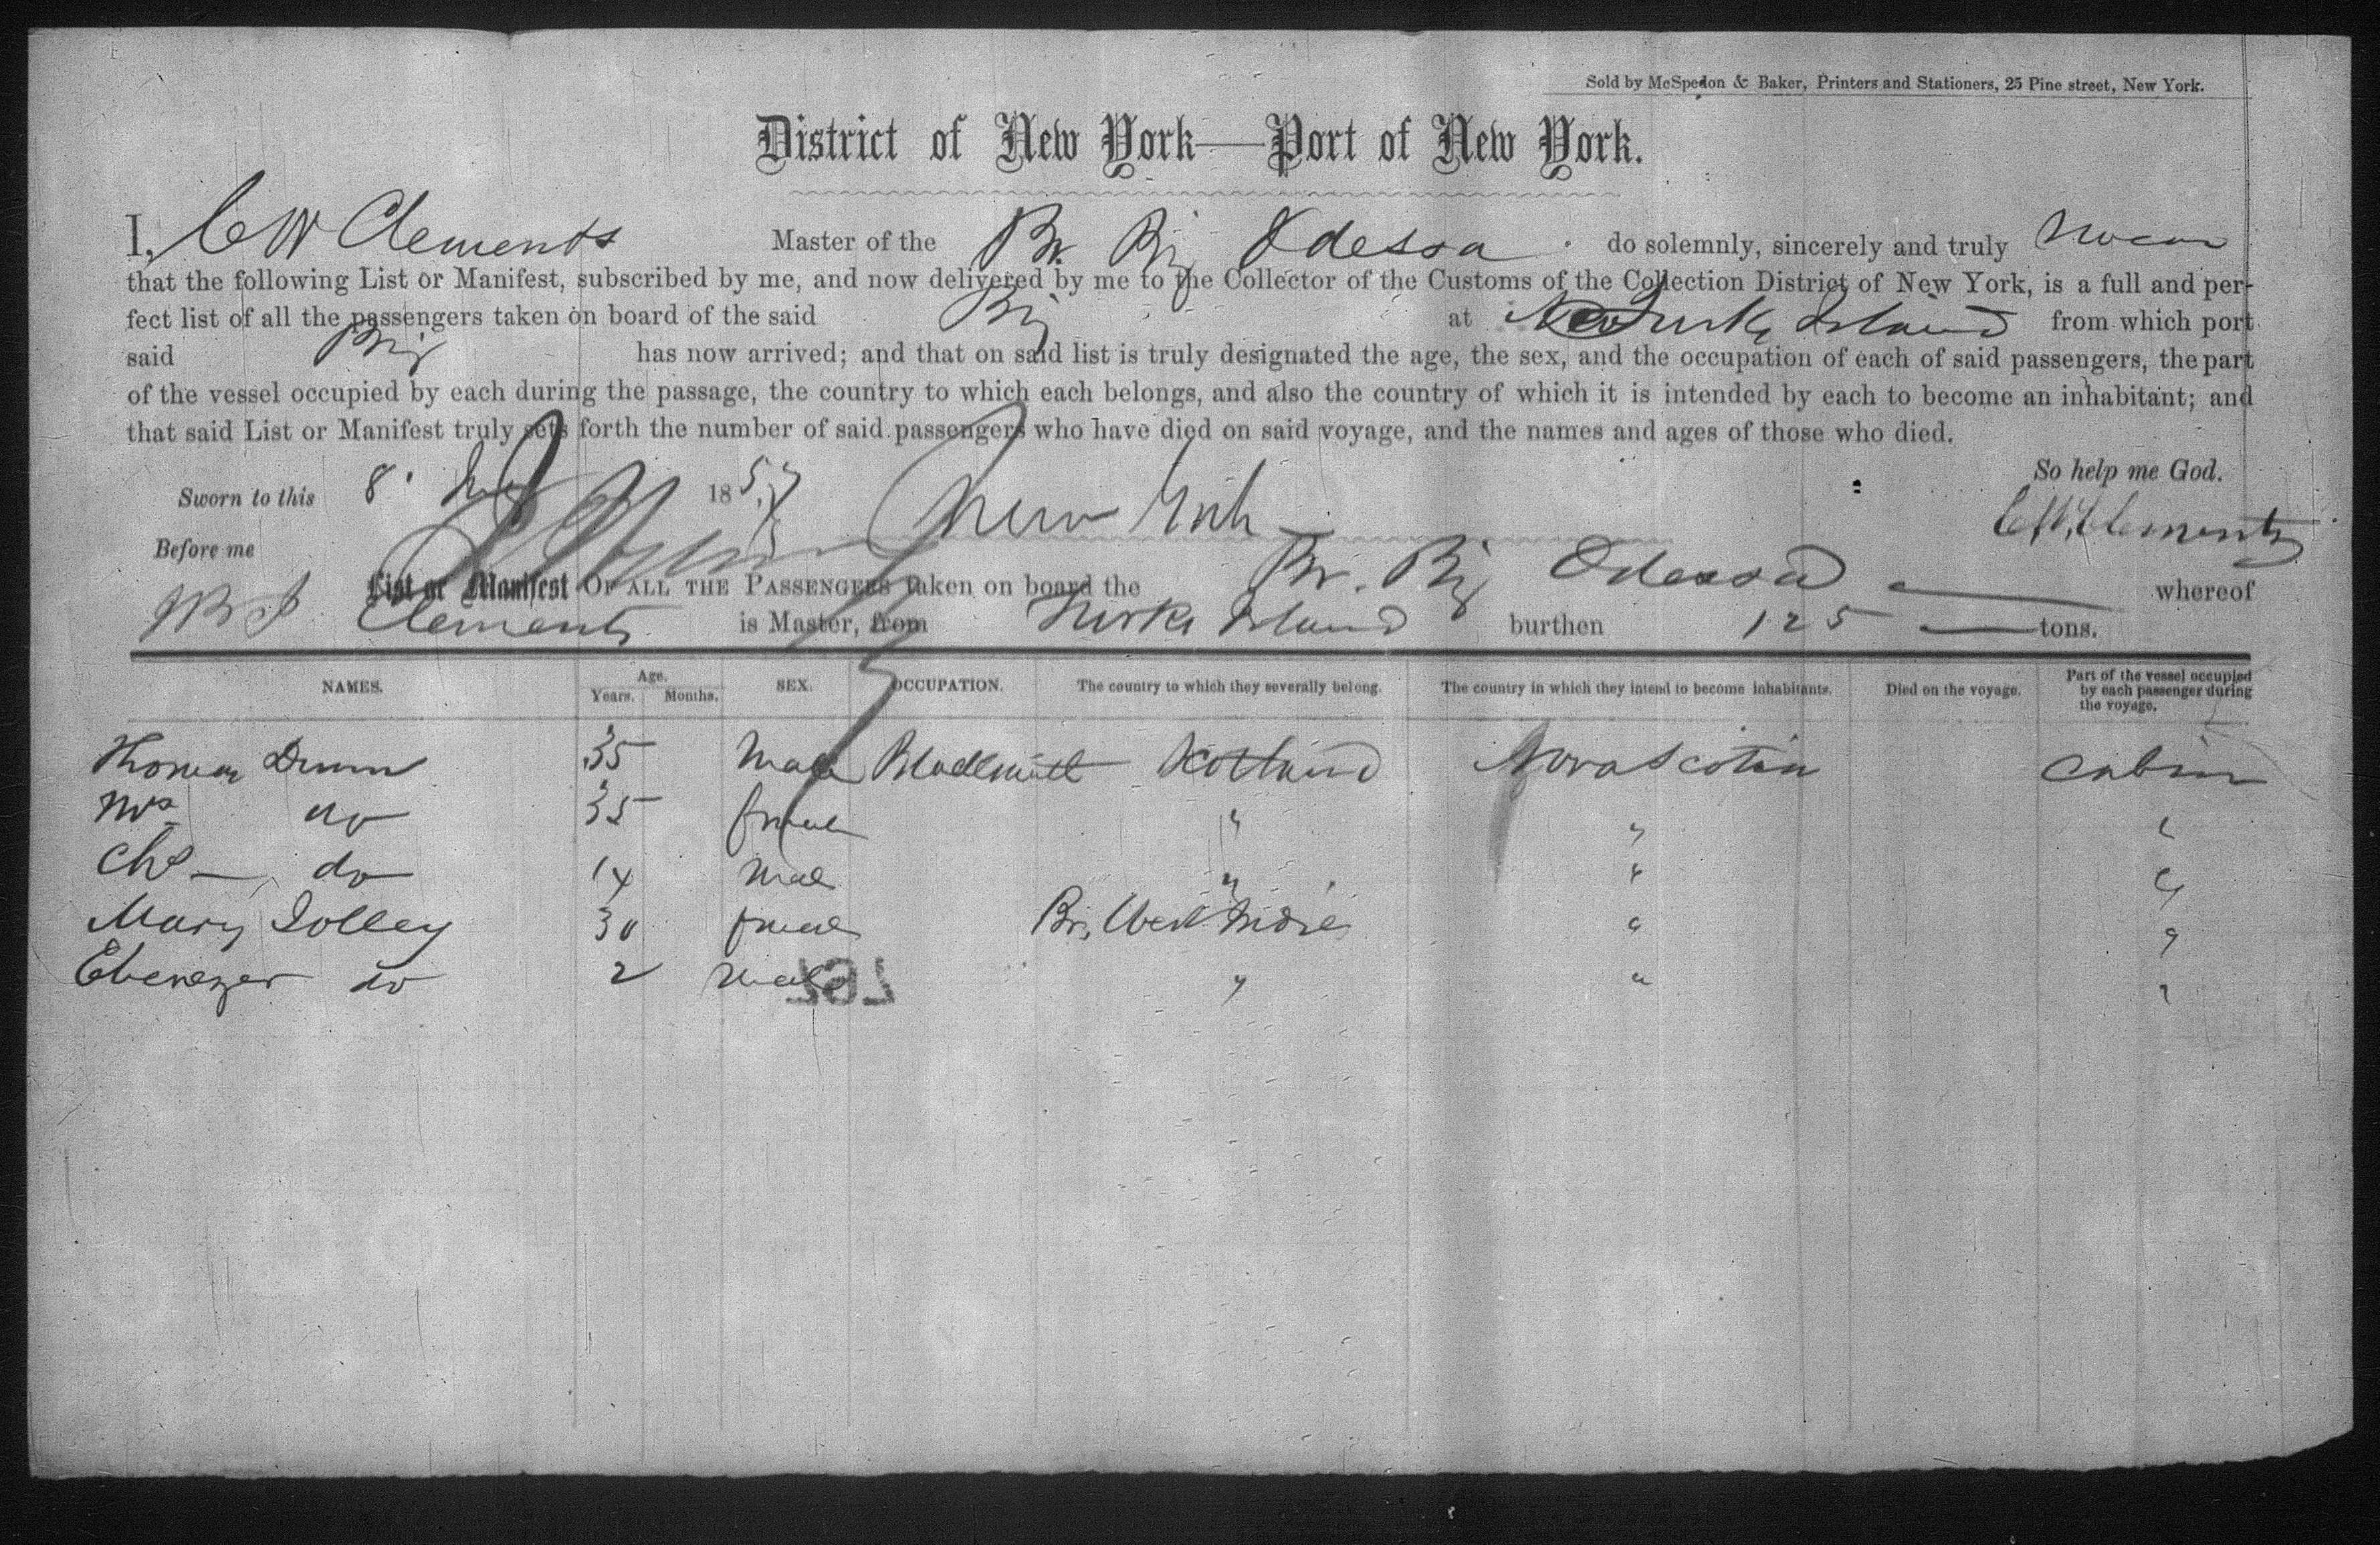 Sold by McSpedon & Baker, Printers and Stationers, 25 Pine street, New York.
District of New York—Port of New York.
I, C W Clements Master of the Br. Big Odessa do solemnly, sincerely and truly swear
that the following List or Manifest, subscribed by me, and now delivered by me to the Collector of the Customs of the Collection District of New York, is a full and per-
fect list of all the passengers taken on board of the said Brig at Turks Island from which port
said Brig has now arrived; and that on said list is truly designated the age, the sex, and the occupation of each of said passengers, the part
of the vessel occupied by each during the passage, the country to which each belongs, and also the country of which it is intended by each to become an inhabitant; and
that said List or Manifest truly sets forth the number of said passengers who have died on said voyage, and the names and ages of those who died.
So help me God.
Sworn to this 8 1857
C W Clements
Before me
List or Manifest OF ALL THE PASSENGERS taken on board the Br. Brig Odessa whereof
Clements is Master, from Turks Island burthen 125 tons.
NAMES. Age. Years. Months. SEX. OCCUPATION. The country to which they severally belong. The country in which they intend to become inhabitants. Died on the voyage. Part of the vessel occupied by each passenger during the voyage.
Thomas Dunn 35 Male Blacksmith Scotland Nova Scotia Cabin
Mrs do 35 female " " "
Chs — do 14 Male " " "
Mary Jolley 30 female Br. West Indies " "
Ebenezer do 2 Male " " "